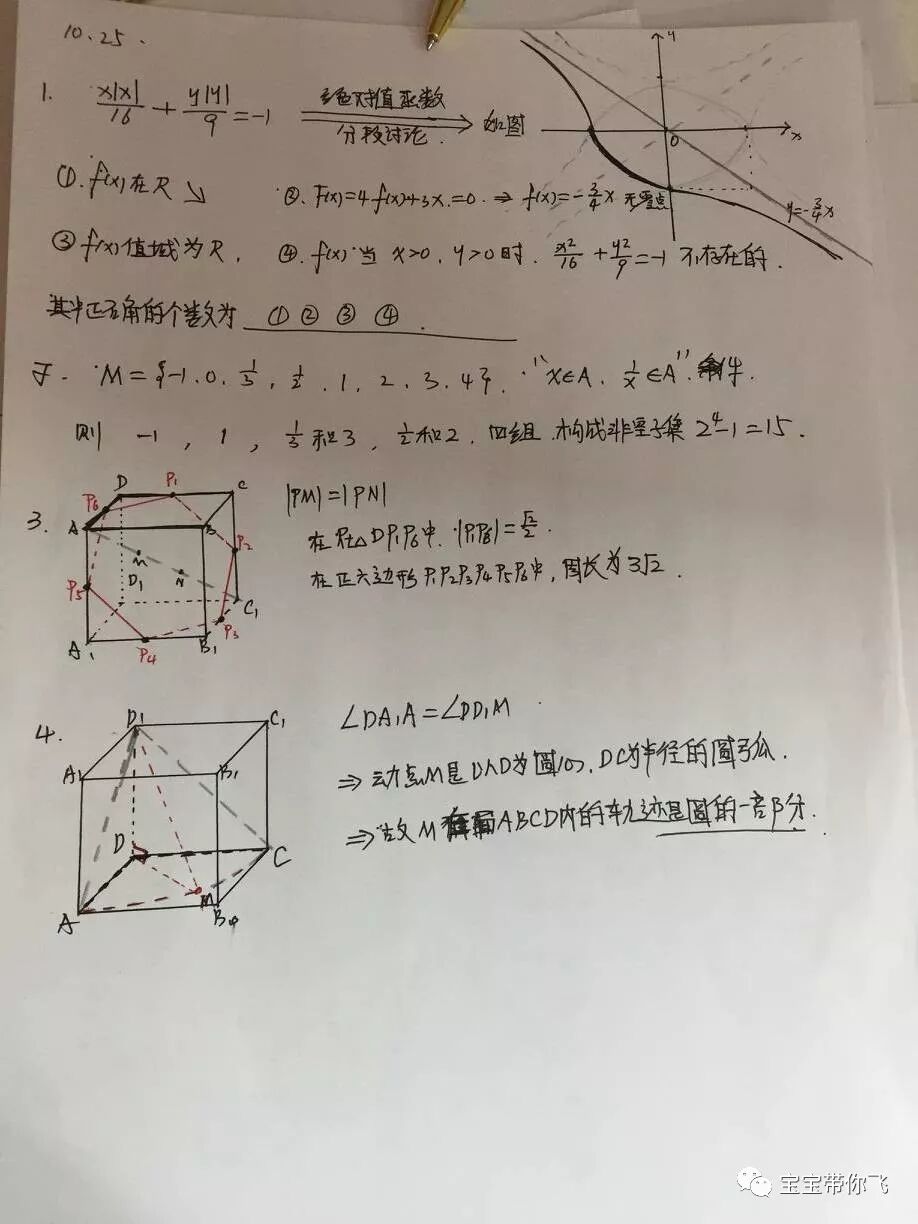 10.25.
1. x|x|/16 + y|y|/9 = -1 绝对值函数 分段讨论 如图
y
x
0
y=-3/4x
①. f(x)在R↘ ②. F(x)=4f(x)+3x=0 ⇒ f(x)=-3/4x 无零点
③ f(x)值域为R. ④. f(x)当 x>0, y>0时. x²/16 + y²/9 = -1 不存在的.
其中正确的个数为 ① ② ③ ④ .
M={-1.0. 1/3, 1/2, 1, 2, 3, 4}. "x∈A, 1/x∈A" 条件.
则 -1, 1, 1/3和3, 1/2和2, 四组 构成非空子集 2⁴-1=15.
3.
D P1 C
P6
A B
P2
M
N
P5 D1
C1
P3
A1 P4 B1
|PM|=|PN|
在Rt△DP1P6中. |P1P6|=√2/2.
在正六边形 P1P2P3P4P5P6中, 周长为3√2.
4.
D1 C1
A1 B1
D C
M
A B
∠DA1A=∠DD1M
⇒ 动点M是以D为圆心, DC为半径的圆弧.
⇒ 故M ABCD内的轨迹是圆的一部分.
宝宝带你飞